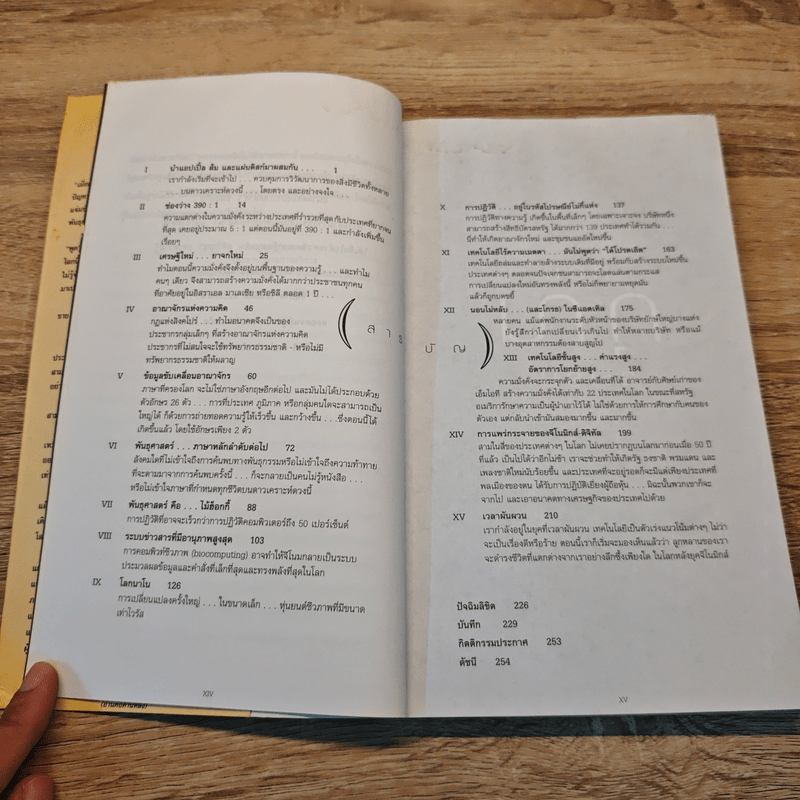 I นำแอปเปิ้ล ส้ม และแผ่นดิสก์มาผสมกัน . . . 1
เรากำลังเริ่มที่จะเข้าไป . . . ควบคุมการวิวัฒนาการของสิ่งมีชีวิตทั้งหลาย
. . . บนดาวเคราะห์ดวงนี้ . . . โดยตรง และอย่างจงใจ . . .
II ช่องว่าง 390 : 1 14
ความแตกต่างในความมั่งคั่งระหว่างประเทศที่ร่ำรวยที่สุดกับประเทศที่ยากจน
ที่สุด เคยอยู่ประมาณ 5 : 1 แต่ตอนนี้มันอยู่ที่ 390 : 1 และกำลังเพิ่มขึ้น
เรื่อยๆ
III เศรษฐีใหม่ . . . ยาจกใหม่ 25
ทำไมตอนนี้ความมั่งคั่งจึงตั้งอยู่บนพื้นฐานของความรู้ . . . และทำไม
คนๆ เดียว จึงสามารถสร้างความมั่งคั่งได้มากกว่าประชาชนทุกคน
ที่อาศัยอยู่ในอิสราเอล มาเลเซีย หรือชิลี ตลอด 1 ปี . . .
IV อาณาจักรแห่งความคิด 46
กฎแห่งลิงคโปร์ . . . ทำไมอนาคตจึงเป็นของ
ประชากรกลุ่มเล็กๆ ที่สร้างอาณาจักรแห่งความคิด
ประชากรที่ไม่สนใจจะใช้ทรัพยากรธรรมชาติ - หรือไม่มี
ทรัพยากรธรรมชาติให้ผลาญ
V ข้อมูลขับเคลื่อนอาณาจักร 60
ภาษาที่ครองโลก จะไม่ใช่ภาษาอังกฤษอีกต่อไป และมันไม่ได้ประกอบด้วย
ตัวอักษร 26 ตัว . . . การที่ประเทศ ภูมิภาค หรือกลุ่มคนใดจะสามารถเป็น
ใหญ่ได้ ก็ด้วยการถ่ายทอดความรู้ให้เร็วขึ้น และกว้างขึ้น . . . ซึ่งตอนนี้ได้
เกิดขึ้นแล้ว โดยใช้อักษรเพียง 2 ตัว
VI พันธุศาสตร์ . . . ภาษาหลักลำดับต่อไป 72
สังคมใดที่ไม่เข้าใจถึงการค้นพบทางพันธุกรรมหรือไม่เข้าใจถึงความท้าทาย
ที่จะตามมาจากการค้นพบครั้งนี้ . . . ก็จะกลายเป็นคนไม่รู้หนังสือ . . .
หรือไม่เข้าใจภาษาที่กำหนดทุกชีวิตบนดาวเคราะห์ดวงนี้
VII พันธุศาสตร์ คือ . . . ไม้ฮ็อกกี้ 88
การปฏิวัติที่อาจจะเร็วกว่าการปฏิวัติคอมพิวเตอร์ถึง 50 เปอร์เซ็นต์
VIII ระบบข่าวสารที่มีอานุภาพสูงสุด 103
การคอมพิวท์ชีวภาพ (biocomputing) อาจทำให้จีโนมกลายเป็นระบบ
ประมวลผลข้อมูลและคำสั่งที่เล็กที่สุดและทรงพลังที่สุดในโลก
IX โลกนาโน 126
การเปลี่ยนแปลงครั้งใหญ่ . . . ในขนาดเล็ก . . . หุ่นยนต์ชีวภาพที่มีขนาด
เท่าไวรัส
XIV
(สารบัญ)
X การปฏิวัติ . . . อยู่ในรหัสไปรษณีย์ไม่กี่แห่ง 137
การปฏิวัติทางความรู้ เกิดขึ้นในพื้นที่เล็กๆ โดยเฉพาะเจาะจง บริษัทหนึ่ง
สามารถสร้างสิทธิบัตรสหรัฐ ได้มากกว่า 139 ประเทศทำได้รวมกัน . . .
นี่ทำให้เกิดอาณาจักรใหม่ และชุมชนแออัดใหม่ขึ้น
XI เทคโนโลยีไร้ความเมตตา . . . มันไม่พูดว่า "ได้โปรดเถิด" 163
เทคโนโลยีถล่มและทำลายล้างระบบเดิมที่มีอยู่ พร้อมกับสร้างระบบใหม่ขึ้น
ประเทศต่างๆ ตลอดจนปัจเจกชนสามารถจะโลดแล่นตามกระแส
การเปลี่ยนแปลงใหม่อันทรงพลังนี้ หรือไม่ก็พยายามหยุดมัน
แล้วก็ถูกบดขยี้
XII นอนไม่หลับ . . . (และโกรธ) ในซีแอตเทิล 175
หลายคน แม้แต่พนักงานระดับหัวหน้าของบริษัทยักษ์ใหญ่บางแห่ง
ยังรู้สึกว่าโลกเปลี่ยนเร็วเกินไป ทำให้หลายบริษัท หรือแม้
บางอุตสาหกรรมต้องสาบสูญไป
XIII เทคโนโลยีชั้นสูง . . . ค่าแรงสูง . . .
อัตราการโยกย้ายสูง . . . 184
ความมั่งคั่งจะกระจุกตัว และเคลื่อนที่ได้ อาจารย์กับศิษย์เก่าของ
เอ็มไอที สร้างความมั่งคั่งได้เท่ากับ 22 ประเทศในโลก ในขณะที่สหรัฐ
อเมริการักษาความเป็นผู้นำเอาไว้ได้ ไม่ใช่ด้วยการให้การศึกษากับคนของ
ตัวเอง แต่กลับนำเข้ามันสมองมากขึ้น และมากขึ้น
XIV การแพร่กระจายของจีโนมิกส์-ดิจิทัล 199
สามในสี่ของประเทศต่างๆ ในโลก ไม่เคยปรากฏบนโลกมาก่อนเมื่อ 50 ปี
ที่แล้ว เป็นไปได้ว่าอีกไม่ช้า เราจะช่วยทำให้เกิดรัฐ ธงชาติ พรมแดน และ
เพลงชาติใหม่นับร้อยขึ้น และประเทศที่จะอยู่รอดก็จะมีแต่เพียงประเทศที่
พลเมืองของตน ได้รับการปฏิบัติเยี่ยงผู้ถือหุ้น . . . มิฉะนั้นพวกเขาก็จะ
จากไป และเอาอนาคตทางเศรษฐกิจของประเทศไปด้วย
XV เวลาผันผวน 210
เรากำลังอยู่ในยุคที่เวลาผันผวน เทคโนโลยีเป็นตัวเร่งแนวโน้มต่างๆ ไม่ว่า
จะเป็นเรื่องดีหรือร้าย ตอนนี้เราก็เริ่มจะมองเห็นแล้วว่า ลูกหลานของเรา
จะดำรงชีวิตที่แตกต่างจากเราอย่างลึกซึ้งเพียงใด ในโลกหลังยุคจีโนมิกส์
ปัจฉิมลิขิต 226
บันทึก 229
กิตติกรรมประกาศ 253
ดัชนี 254
XV